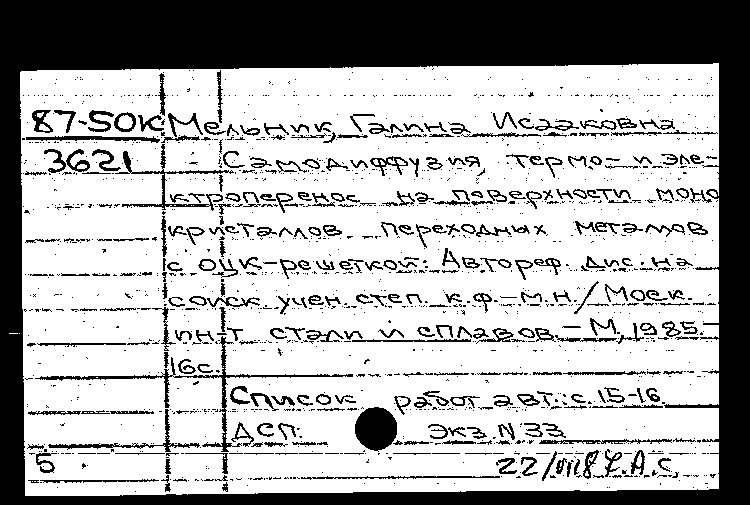 87-50К Мельник, Галина Исааковна
3621 - Самодиффузия, термо- и эле-
ктроперенос на поверхности моно
кристаллов переходных металлов
с ОЦК-решеткой: Автореф. дис. на
соиск. учен. степ. к.ф.-м.н./Моск.
ин-т стали и сплавов.-М, 1985.-
16с.
Список работ авт.: с. 15-16
ДСП. Экз N 33
5 22/VII8